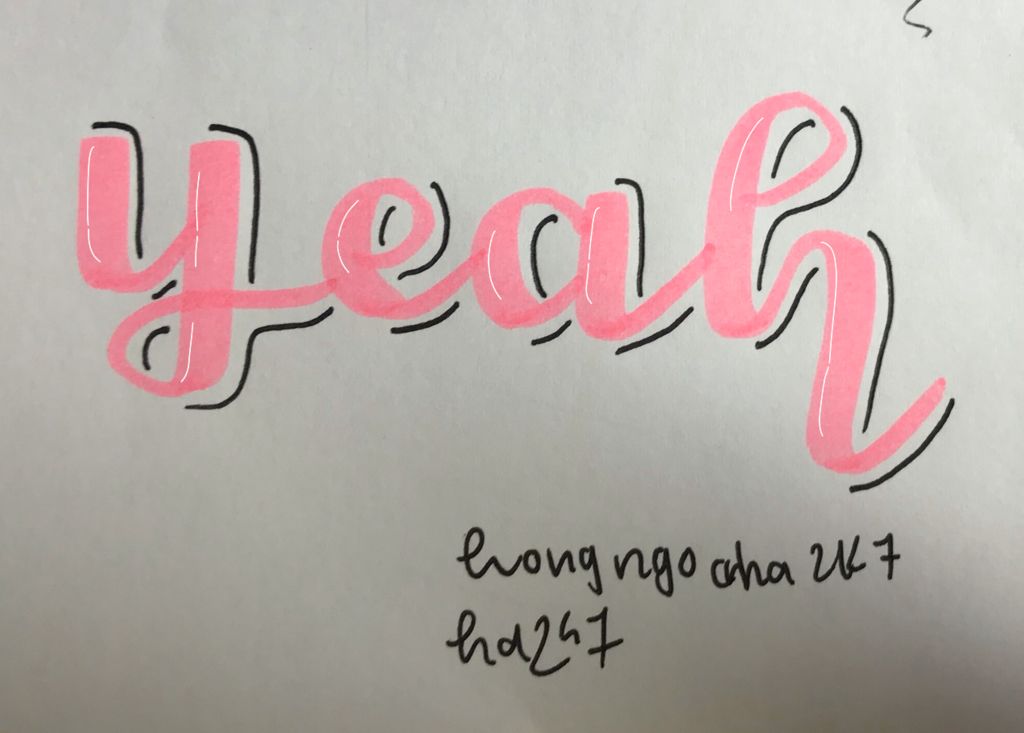 yeah
huongngocha2k7
hd247